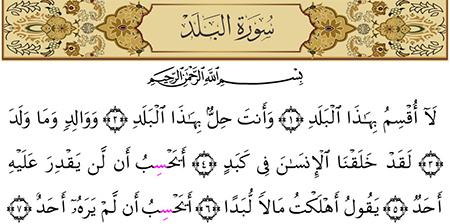 سُورَةُ البَلَدِ
بِسْمِ اللَّهِ الرَّحْمَٰنِ الرَّحِيمِ
لَآ أُقْسِمُ بِهَٰذَا ٱلْبَلَدِ ﴿١﴾ وَأَنتَ حِلُّۢ بِهَٰذَا ٱلْبَلَدِ ﴿٢﴾ وَوَالِدٍ وَمَا وَلَدَ
﴿٣﴾ لَقَدْ خَلَقْنَا ٱلْإِنسَٰنَ فِى كَبَدٍ ﴿٤﴾ أَيَحْسِبُ أَن لَّن يَقْدِرَ عَلَيْهِ
أَحَدٌ ﴿٥﴾ يَقُولُ أَهْلَكْتُ مَالًا لُّبَدًا ﴿٦﴾ أَيَحْسِبُ أَن لَّمْ يَرَهُۥٓ أَحَدٌ ﴿٧﴾